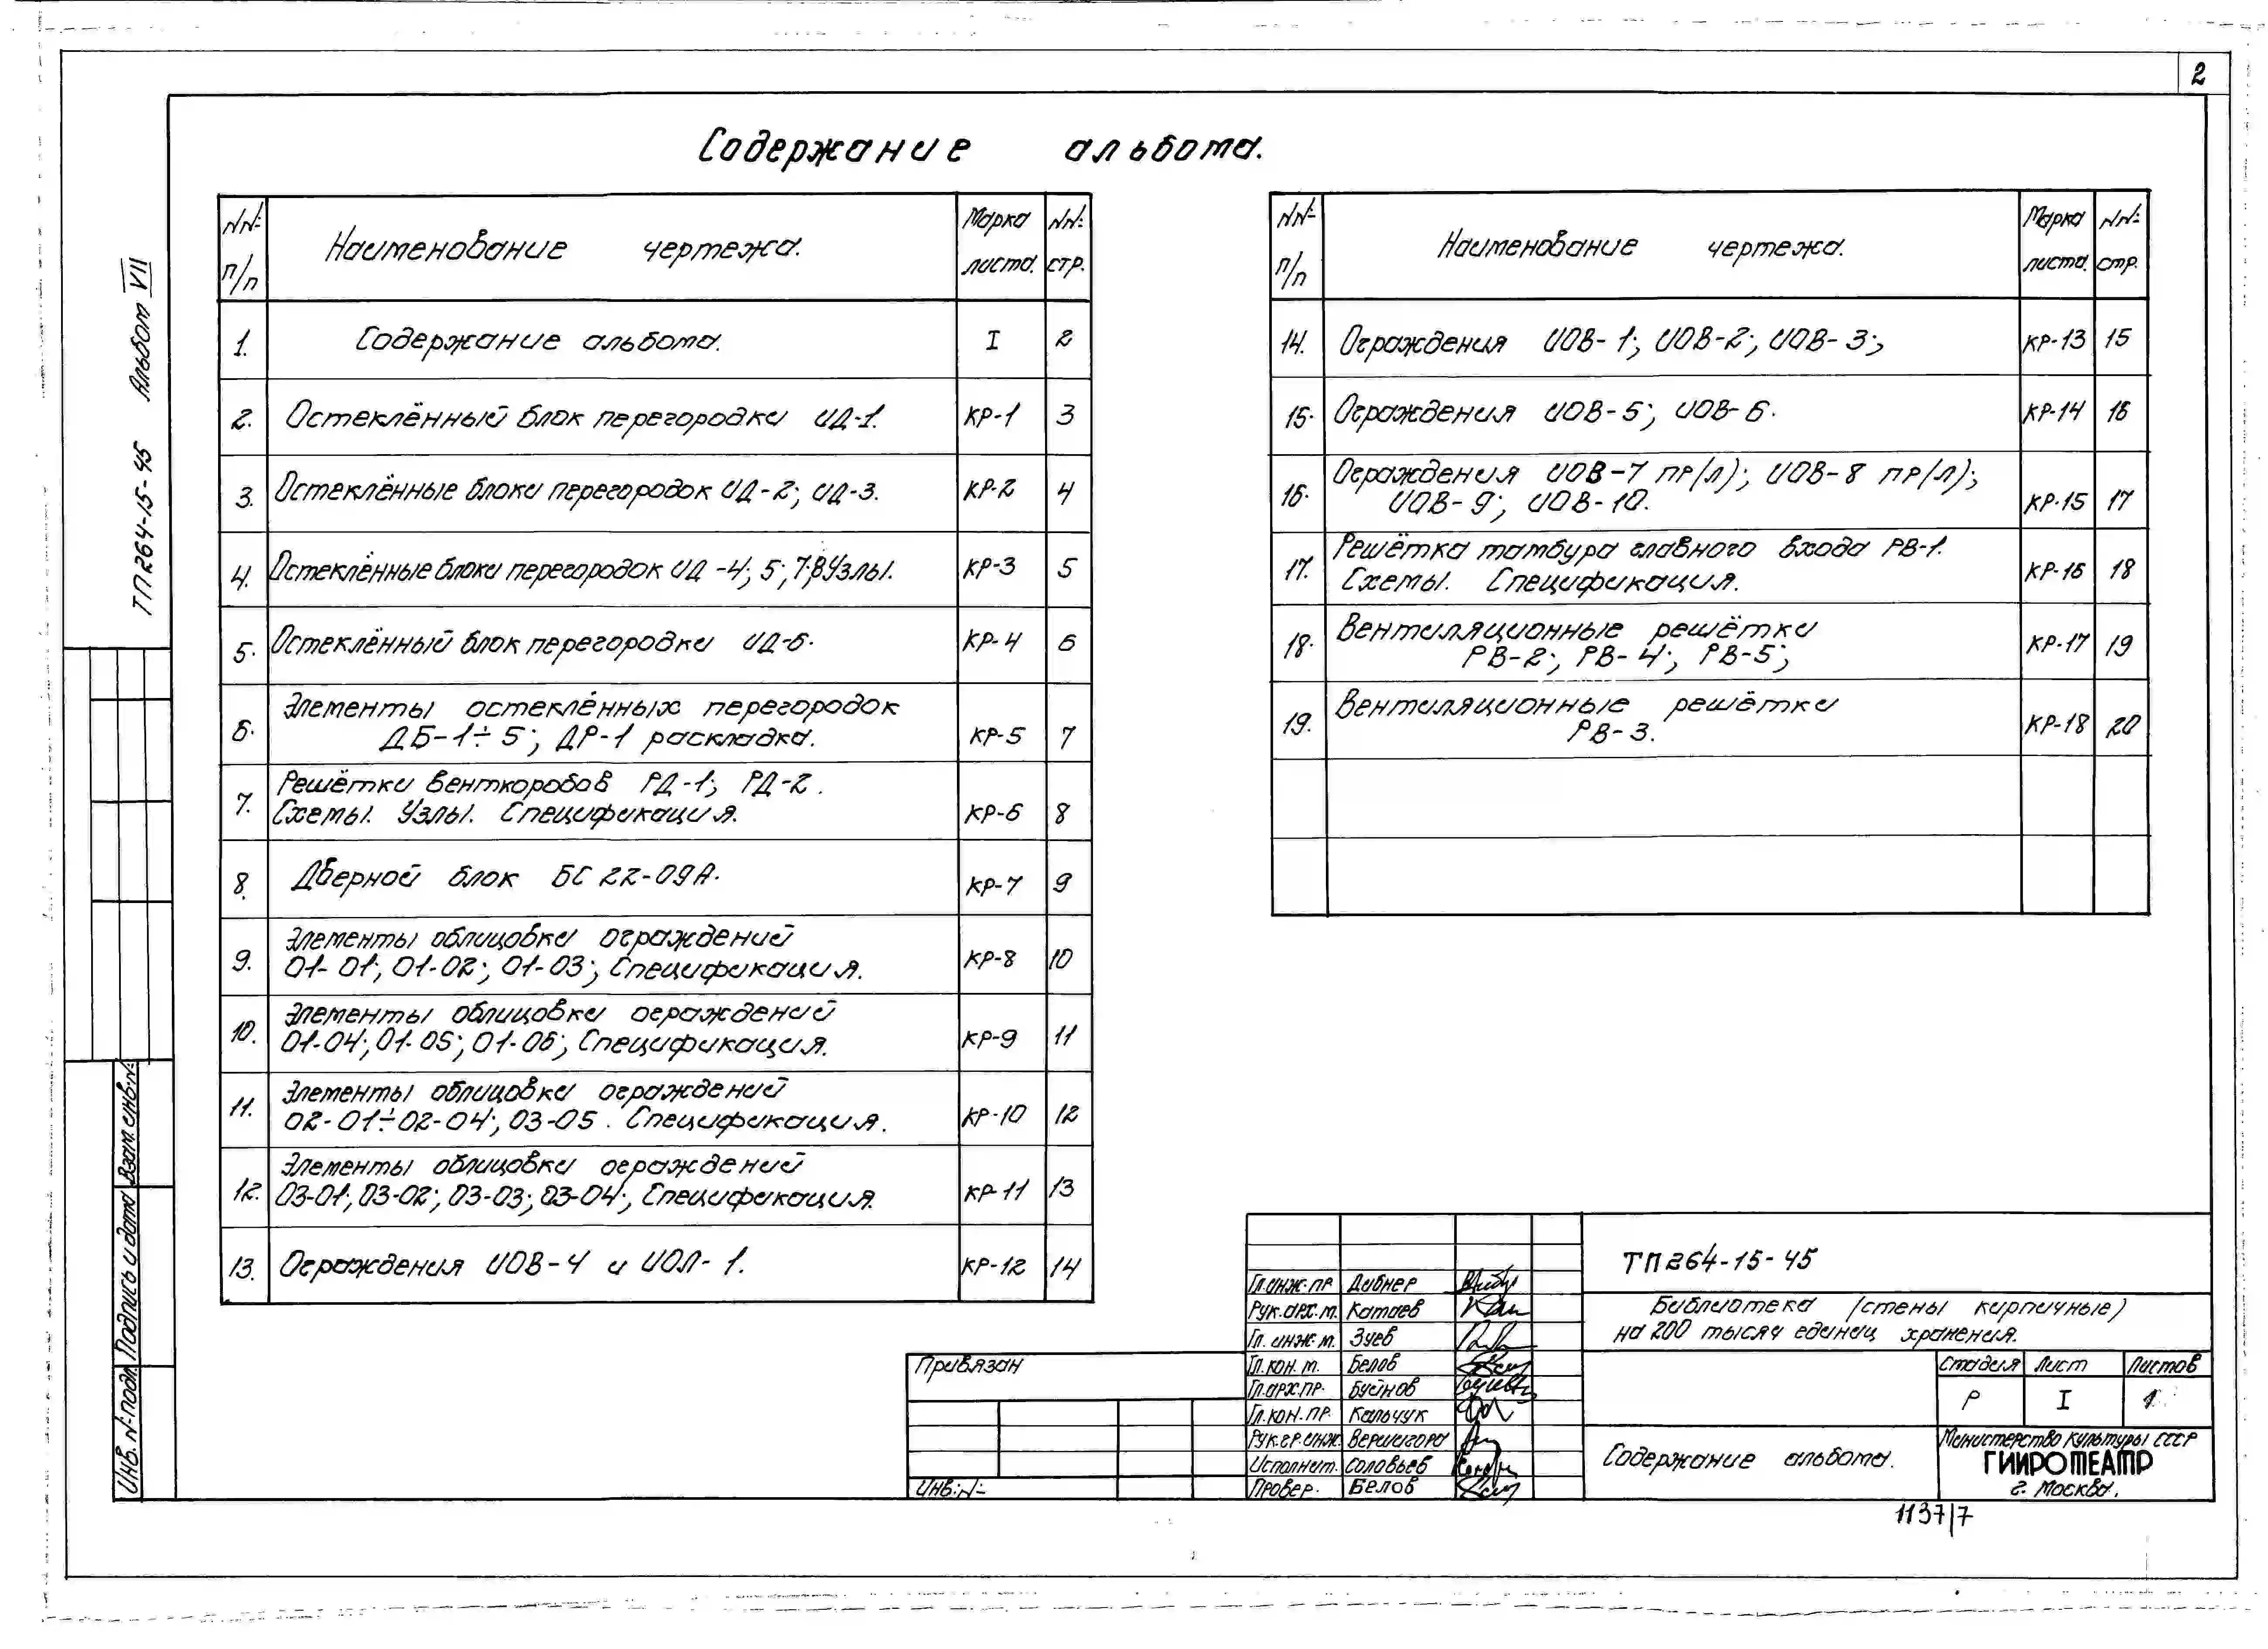 2
Содержание альбома.
ТП 264-15-45 Альбом VII
NN: п/п Наименование чертежа. Марка листа. NN: стр.
1. Содержание альбома. I 2
2. Остеклённый блок перегородки ИД-1. КР-1 3
3. Остеклённые блоки перегородок ИД-2; ИД-3. КР-2 4
4. Остеклённые блоки перегородок ИД-4; 5; 7; 8 Узлы. КР-3 5
5. Остеклённый блок перегородки ИД-6. КР-4 6
6. Элементы остеклённых перегородок
ДБ-1÷5; ДР-1 раскладка. КР-5 7
7. Решётки венткоробов РД-1; РД-2.
Схемы. Узлы. Спецификация. КР-6 8
8. Дверной блок БС 22-09А. КР-7 9
9. Элементы облицовки ограждений
01-01; 01-02; 01-03; Спецификация. КР-8 10
10. Элементы облицовки ограждений
01-04; 01-05; 01-06; Спецификация. КР-9 11
11. Элементы облицовки ограждений
02-01÷02-04; 03-05. Спецификация. КР-10 12
12. Элементы облицовки ограждений
03-01; 03-02; 03-03; 03-04; Спецификация. КР-11 13
13. Ограждения ИОВ-4 и ИОЛ-1. КР-12 14
NN: п/п Наименование чертежа. Марка листа. NN: стр.
14. Ограждения ИОВ-1; ИОВ-2; ИОВ-3; КР-13 15
15. Ограждения ИОВ-5; ИОВ-6. КР-14 16
16. Ограждения ИОВ-7 пр/л); ИОВ-8 пр/л);
ИОВ-9; ИОВ-10. КР-15 17
17. Решётка тамбура главного входа РВ-1.
Схемы. Спецификация. КР-16 18
18. Вентиляционные решётки
РВ-2; РВ-4; РВ-5; КР-17 19
19. Вентиляционные решётки
РВ-3. КР-18 20
Инв. N: подл. Подпись и дата Взам. инв: N:
Привязан
Инв: N:
Гл. инж. пр Дибнер
Рук. арх. м. Катаев
Гл. инж. м. Зуев
Гл. кон. м. Белов
Гл. арх. пр. Буйнов
Гл. кон. пр. Кальчук
Рук. гр. инж. Вершигора
Исполнит. Соловьев
Провер. Белов
ТП 264-15-45
Библиотека (стены кирпичные)
на 200 тысяч единиц хранения.
Стадия Лист Листов
Р I 1
Содержание альбома.
Министерство культуры СССР
ГИПРОТЕАТР
г. Москва.
1137/7